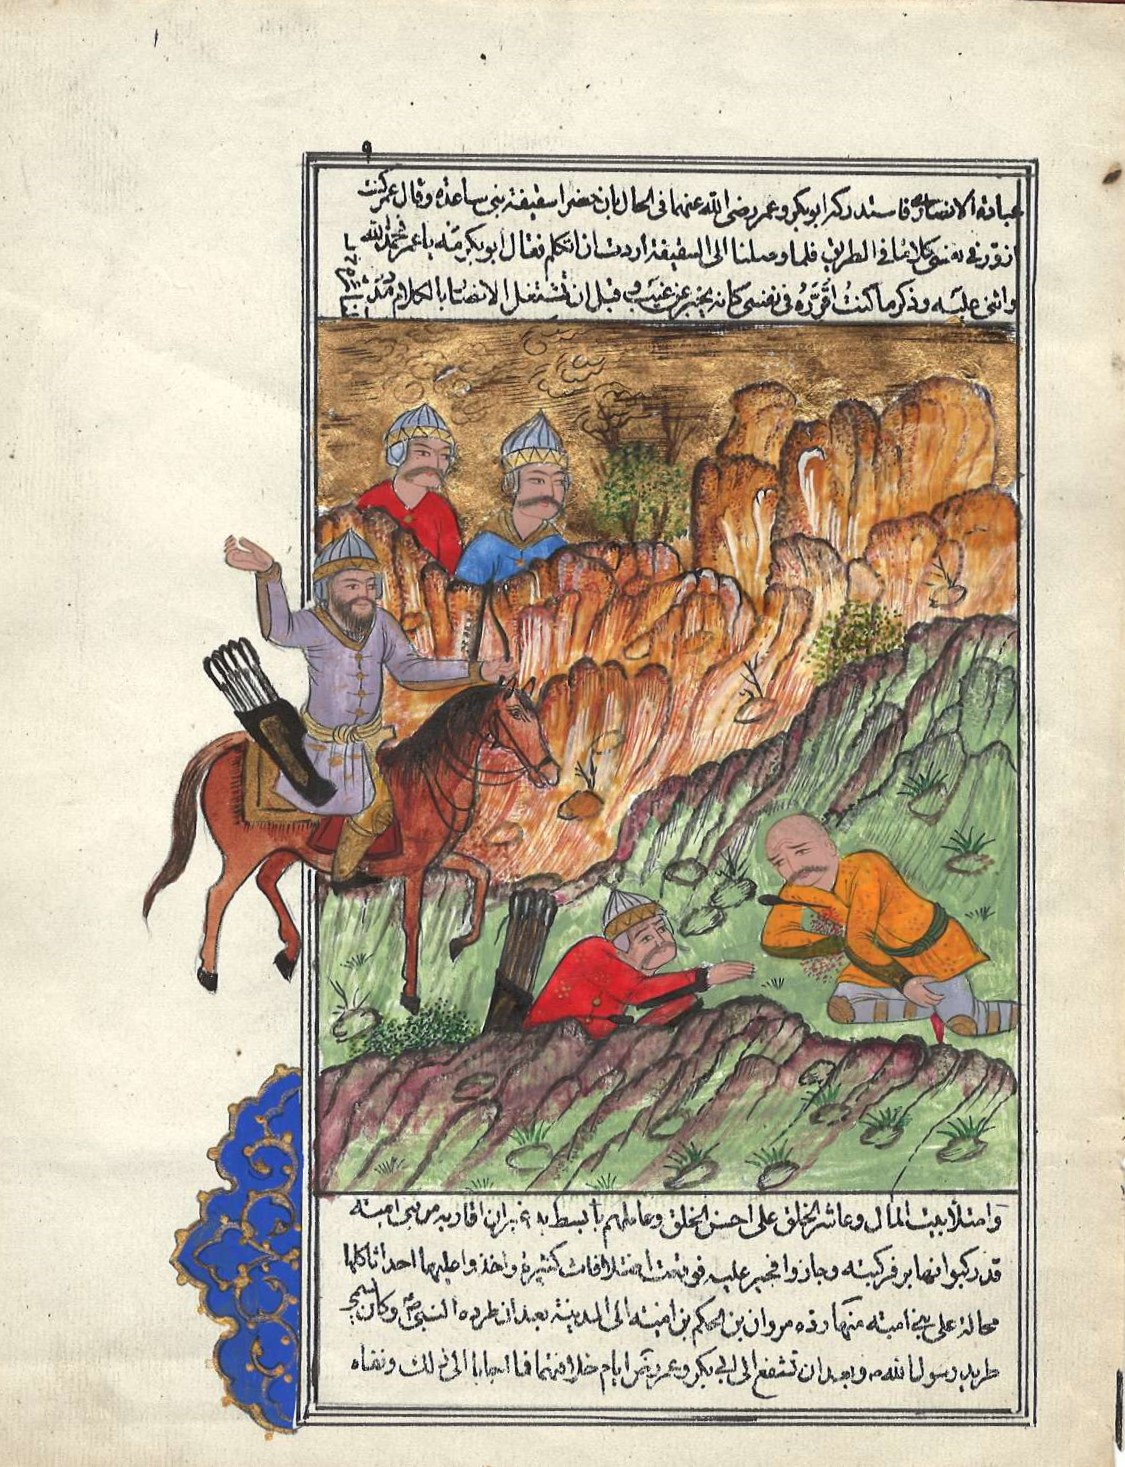 عبادة الانصارى فاستدركه ابو بكر وعمر رضى الله عنهما فى الحال بان حضرا سقيفة بنى ساعدة وقال عمر كنت
ازور فى نفسى كلاما فى الطريق فلما وصلنا الى السقيفة اردت ان اتكلم فقال ابو بكر مه يا عمر فحمد الله
واثنى عليه وذكر ما كنت اقدره فى نفسى كانه يخبر عن غيب و قبل ان تشتغل الانصار بالكلام
وامتلأ بيت المال وعاشر الخلق على احسن الخلق وعاملهم بابسط يد غير ان اقاربه من بنى امية
قد ركبوا فركبته وجاروا فجير عليه فوقعت اختلافات كثيرة واخذوا عليها احداثا كلها
محالة على بنى امية منها رده مروان بن الحكم بن امية الى المدينة بعد ان طرده النبى ص وكان يسمى
طريد رسول الله وبعد ان تشفع الى ابى بكر وعمر ايام خلافتهما فما اجابا الى ذلك ونفاه